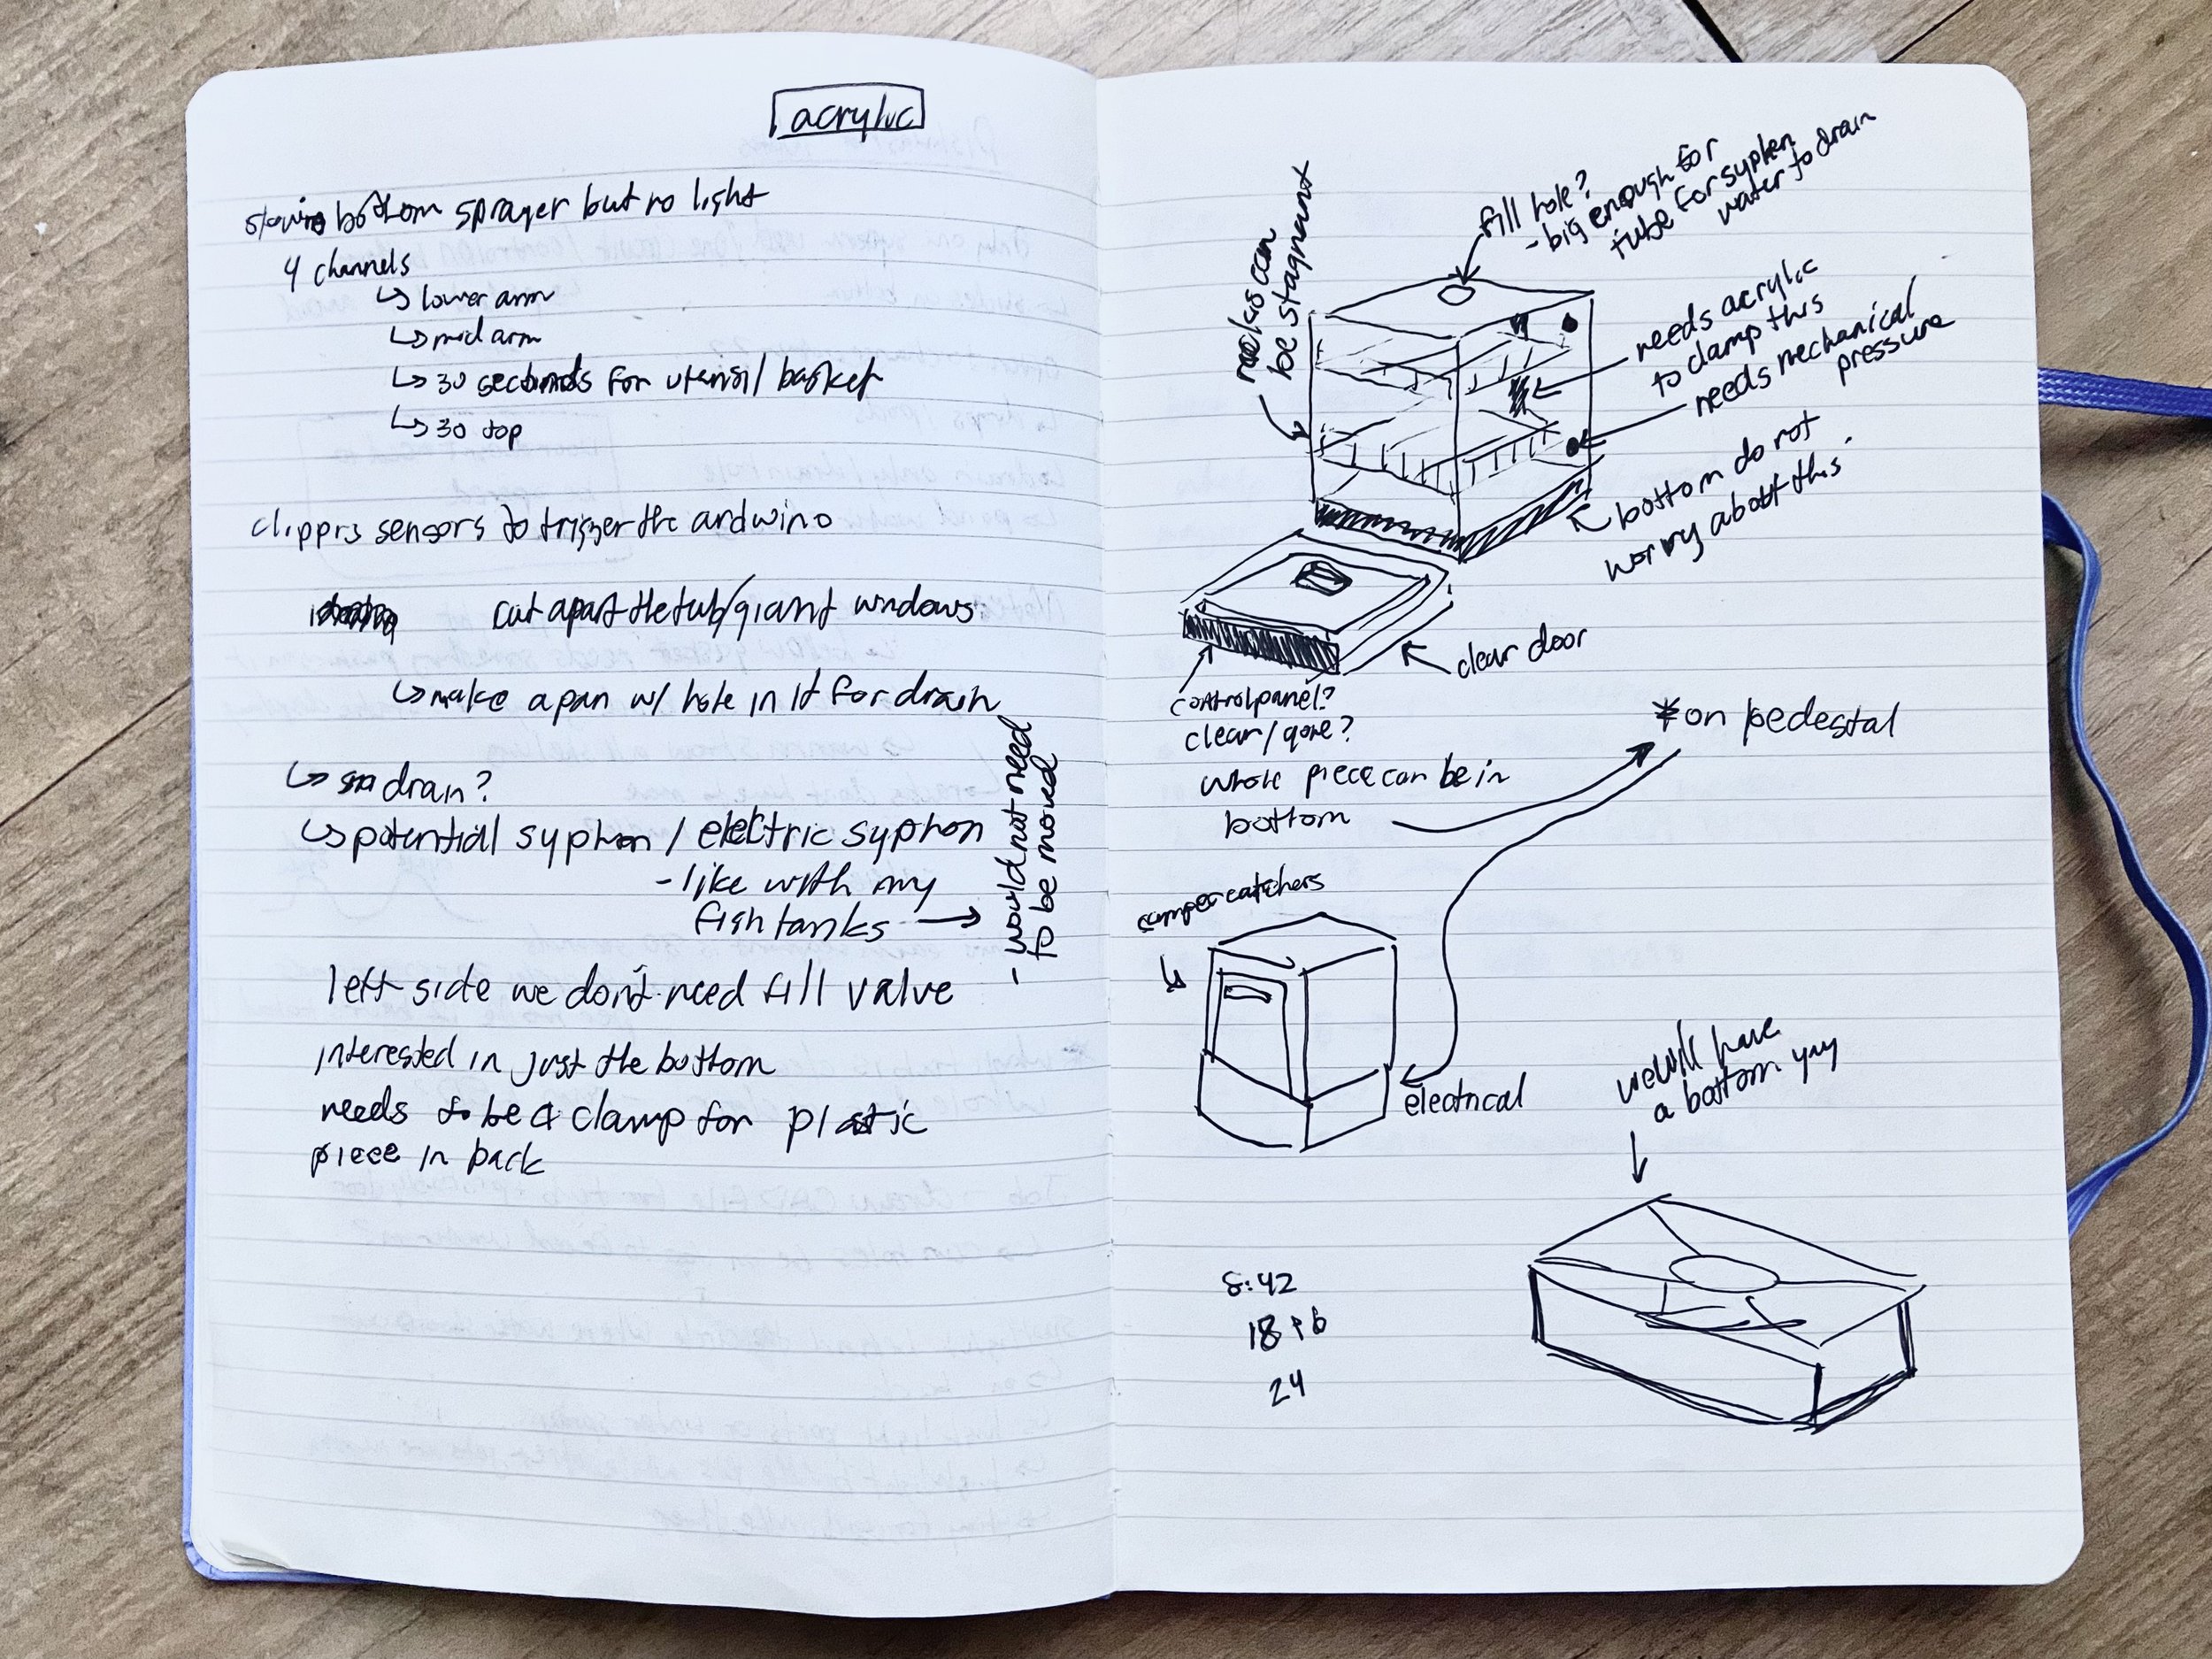 acrylic
bottom sprayer but no light
4 channels
↳ lower arm
↳ mid arm
↳ 30 seconds for utensil basket
↳ 30 top
clippis sensors to trigger the ardwino
cut apart the tub/giant windows
↳ make a pan w/ hole in it for drain
↳ drain?
↳ potential syphon / electric syphon
- like with my
fish tanks →
- would not need
to be moved
left side we don't need fill valve
interested in just the bottom
needs to be a clamp for plastic
piece in back
fill hole?
- big enough for
tube for syphen
water to drain
racks can
be stagnant
needs acrylic
to clamp this
needs mechanical
pressure
bottom do not
worry about this
clear door
control panel?
clear/gone?
whole piece can be in
bottom
*on pedestal
camper catchers
electrical
we will have
a bottom yay
8:42
18+6
24